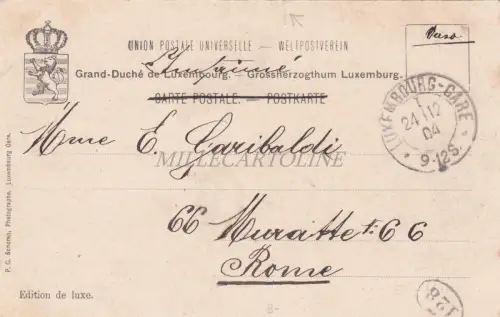 UNION POSTALE UNIVERSELLE – WELTPOSTVEREIN
Imprimé
Grand-Duché de Luxembourg. – Grossherzogthum Luxemburg.
CARTE POSTALE. – POSTKARTE
LUXEMBOURG-GARE
24/12
04
9-12S.
Mme E. Garibaldi
MILLECARTOLINE
66 Muratte 66
Rome
P. C. Schoren, Photographe, Luxembourg Gare.
Edition de luxe.
128